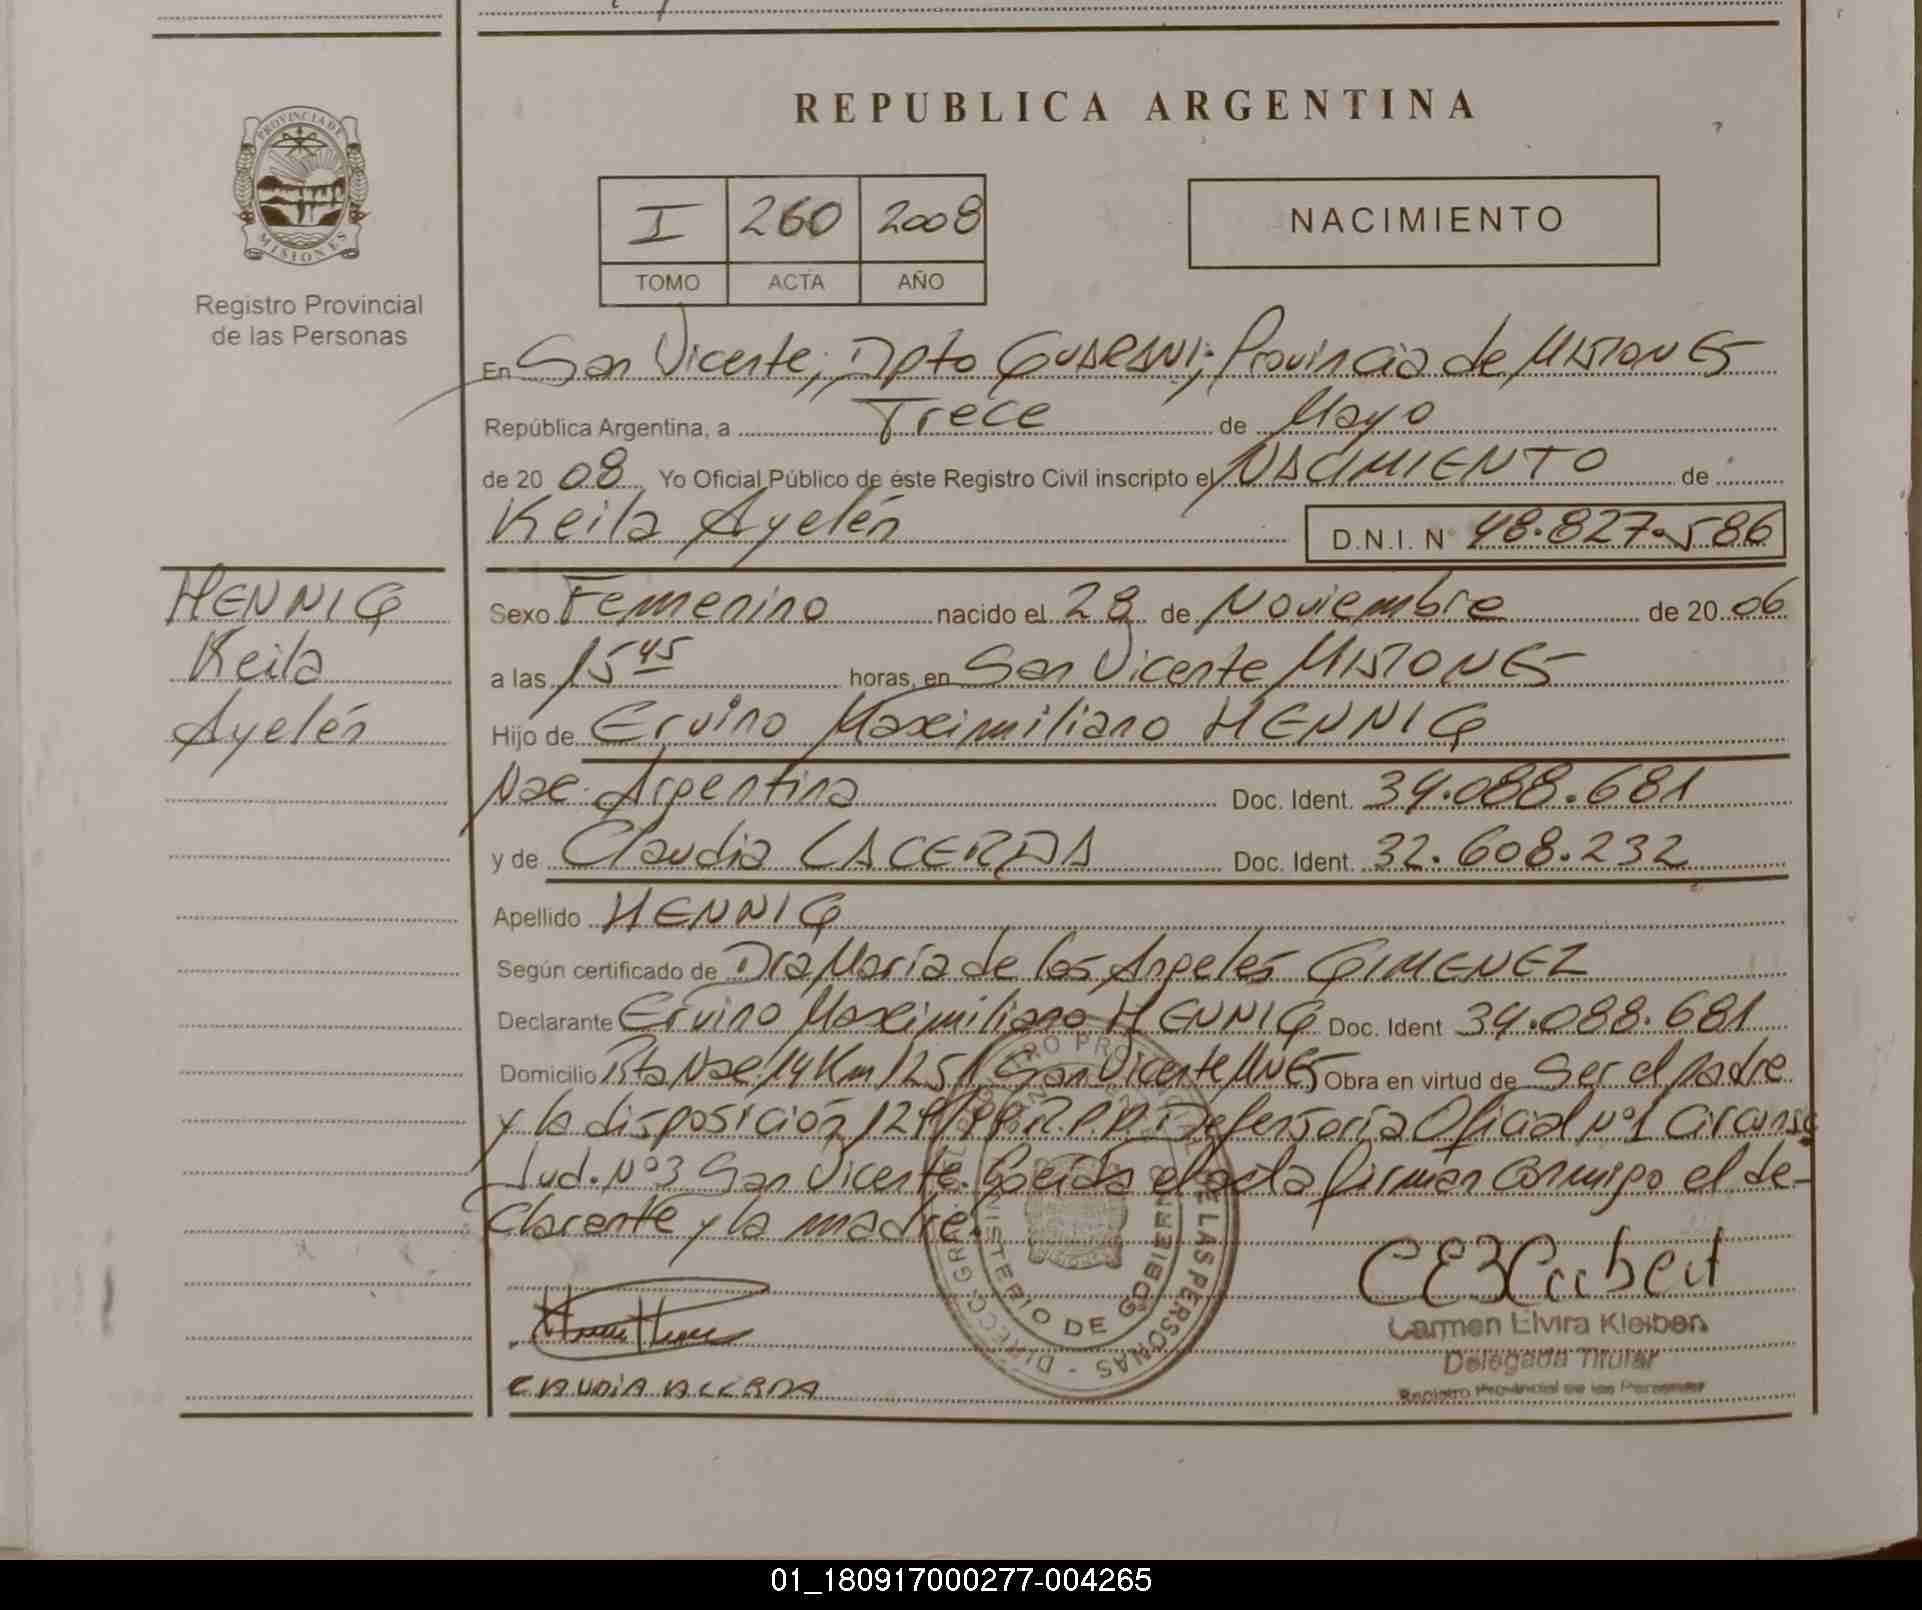 REPUBLICA ARGENTINA
PROVINCIA DE MISIONES
Registro Provincial
de las Personas
I 260 2008
TOMO ACTA AÑO
NACIMIENTO
En San Vicente; Dpto GUARANI; Provincia de MISIONES
República Argentina, a Trece de Mayo
de 20 08 Yo Oficial Público de éste Registro Civil inscripto el NACIMIENTO de
Keila Ayelén D.N.I. N° 48.827.586
HENNIG
Keila
Ayelén
Sexo Femenino nacido el 28 de Noviembre de 20 06
a las 15 45 horas, en San Vicente MISIONES
Hijo de Ervino Maximiliano HENNIG
Nac. Argentina Doc. Ident. 34.088.681
y de Claudia LACERDA Doc. Ident. 32.608.232
Apellido HENNIG
Según certificado de Dra María de los Angeles GIMENEZ
Declarante Ervino Maximiliano HENNIG Doc. Ident 34.088.681
Domicilio Rta Nac 14 Km 1251 San Vicente MNES Obra en virtud de Ser el padre
y la disposición R.P.P. Defensoría Oficial Nº1 Circunsc
Jud. Nº3 San Vicente. Leída el acta firman conmigo el de-
clarante y la madre.
CLAUDIA LACERDA
Carmen Elvira Kleiben
Delegada Titular
Registro Provincial de las Personas
MINISTERIO DE GOBIERNO
DIRECC. GRAL. DEL REGISTRO PROVINCIAL DE LAS PERSONAS
01_180917000277-004265